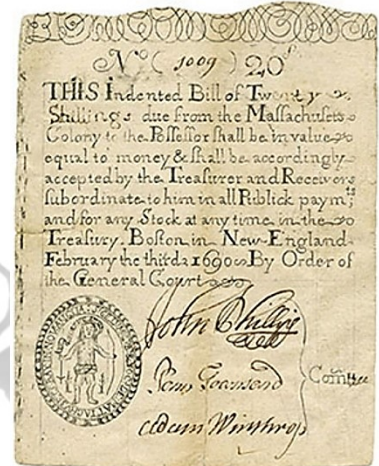 No ( 1009 ) 20s
THIS Indented Bill of Twenty
Shillings due from the Massachusets
Colony to the Possessor shall be in value
equal to money & shall be accordingly
accepted by the Treasurer and Receivors
subordinate to him in all Publick paymts
and for any Stock at any time in the
Treasury. Boston in New-England
February the third 1690 By Order of
the General Court
John Phillips
Penn Townsend
Adam Winthrop
Comttee